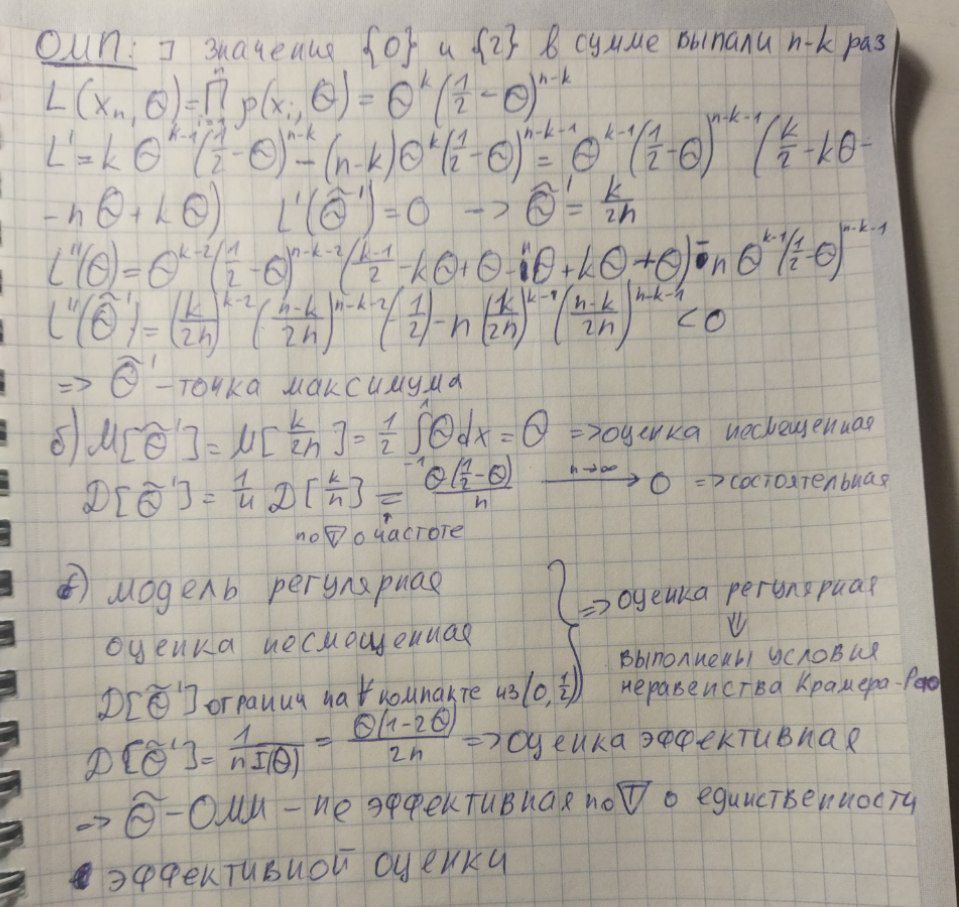 ОМП: ] значения {0} и {2} в сумме выпали n-k раз
L(xₙ, Θ) = ∏ⁿᵢ₌₁ p(xᵢ, Θ) = Θ^k (1/2 - Θ)^(n-k)
L' = k Θ^(k-1) (1/2 - Θ)^(n-k) - (n-k) Θ^k (1/2 - Θ)^(n-k-1) = Θ^(k-1) (1/2 - Θ)^(n-k-1) (k/2 - kΘ -
- nΘ + kΘ) L'(Θ̃') = 0 -> Θ̃' = k/2n
L''(Θ) = Θ^(k-2) (1/2 - Θ)^(n-k-2) ((k-1)/2 - kΘ + Θ - nΘ + kΘ + Θ) - n Θ^(k-1) (1/2 - Θ)^(n-k-1)
L''(Θ̃') = (k/2n)^(k-2) ((n-k)/2n)^(n-k-2) (1/2) - n (k/2n)^(k-1) ((n-k)/2n)^(n-k-1) < 0
=> Θ̃' - точка максимума
б) M[Θ̃'] = M[k/2n] = 1/2 ∫₋₁¹ Θ dx = Θ => оценка несмещенная
D[Θ̃'] = 1/4 D[k/n] = Θ(1/2 - Θ)/n n→∞ → 0 => состоятельная
по ∇ о частоте
в) модель регулярная
оценка несмещенная
D[Θ̃'] огранич на ∀ компакте из (0, 1/2)
=> оценка регулярная
⇓
выполнены условия
неравенства Крамера-Рао
D[Θ̃'] = 1/nI(Θ) = Θ(1-2Θ)/2n => оценка эффективная
=> Θ̃ - ОММ - не эффективная по ∇ о единственности
эффективной оценки